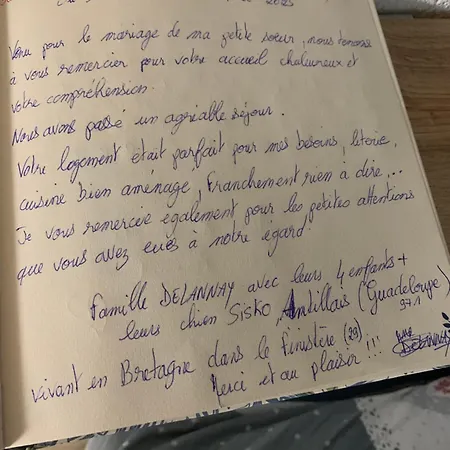 2025
Venu pour le mariage de ma petite soeur, nous tenons
à vous remercier pour votre accueil chaleureux et
votre compréhension.
Nous avons passé un agréable séjour.
Votre logement était parfait pour mes besoins, literie,
cuisine bien aménagé, franchement rien à dire...
Je vous remercie également pour les petites attentions
que vous avez eues à notre égard!
famille DELANNAY avec leurs 4 enfants +
leurs chien Sisko, Antillais (Guadeloupe)
971
vivant en Bretagne dans le finistère (29)
Merci et au plaisir !!!